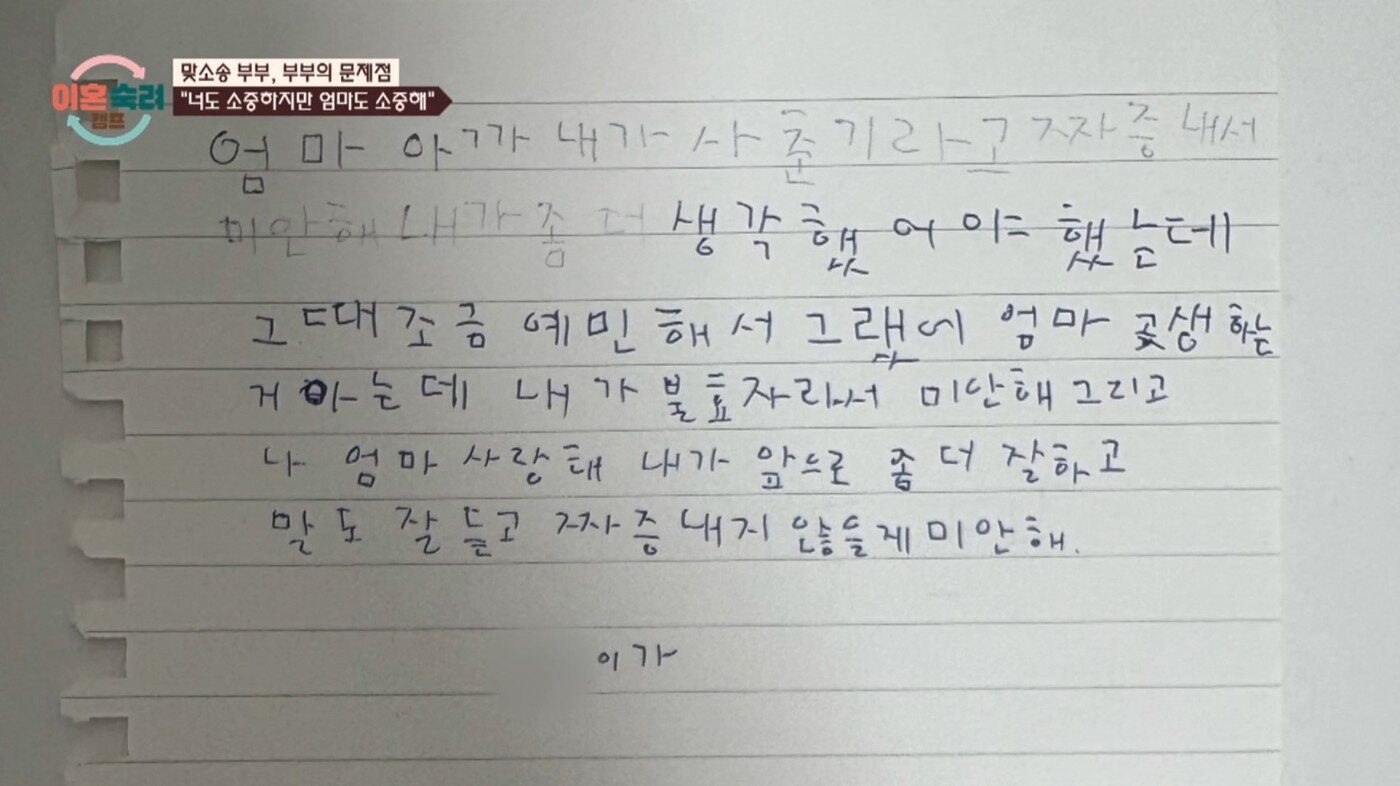 맞소송 부부, 부부의 문제점
이혼숙려
캠프
"너도 소중하지만 엄마도 소중해"
엄마 아까 내가 사춘기라고 짜증내서
미안해 내가 좀 더 생각했어야 했는데
그때 조금 예민해서 그랬어 엄마 고생하는
거 아는데 내가 불효자라서 미안해 그리고
나 엄마 사랑해 내가 앞으로 좀 더 잘하고
말도 잘 듣고 짜증내지 않을게 미안해.
이가